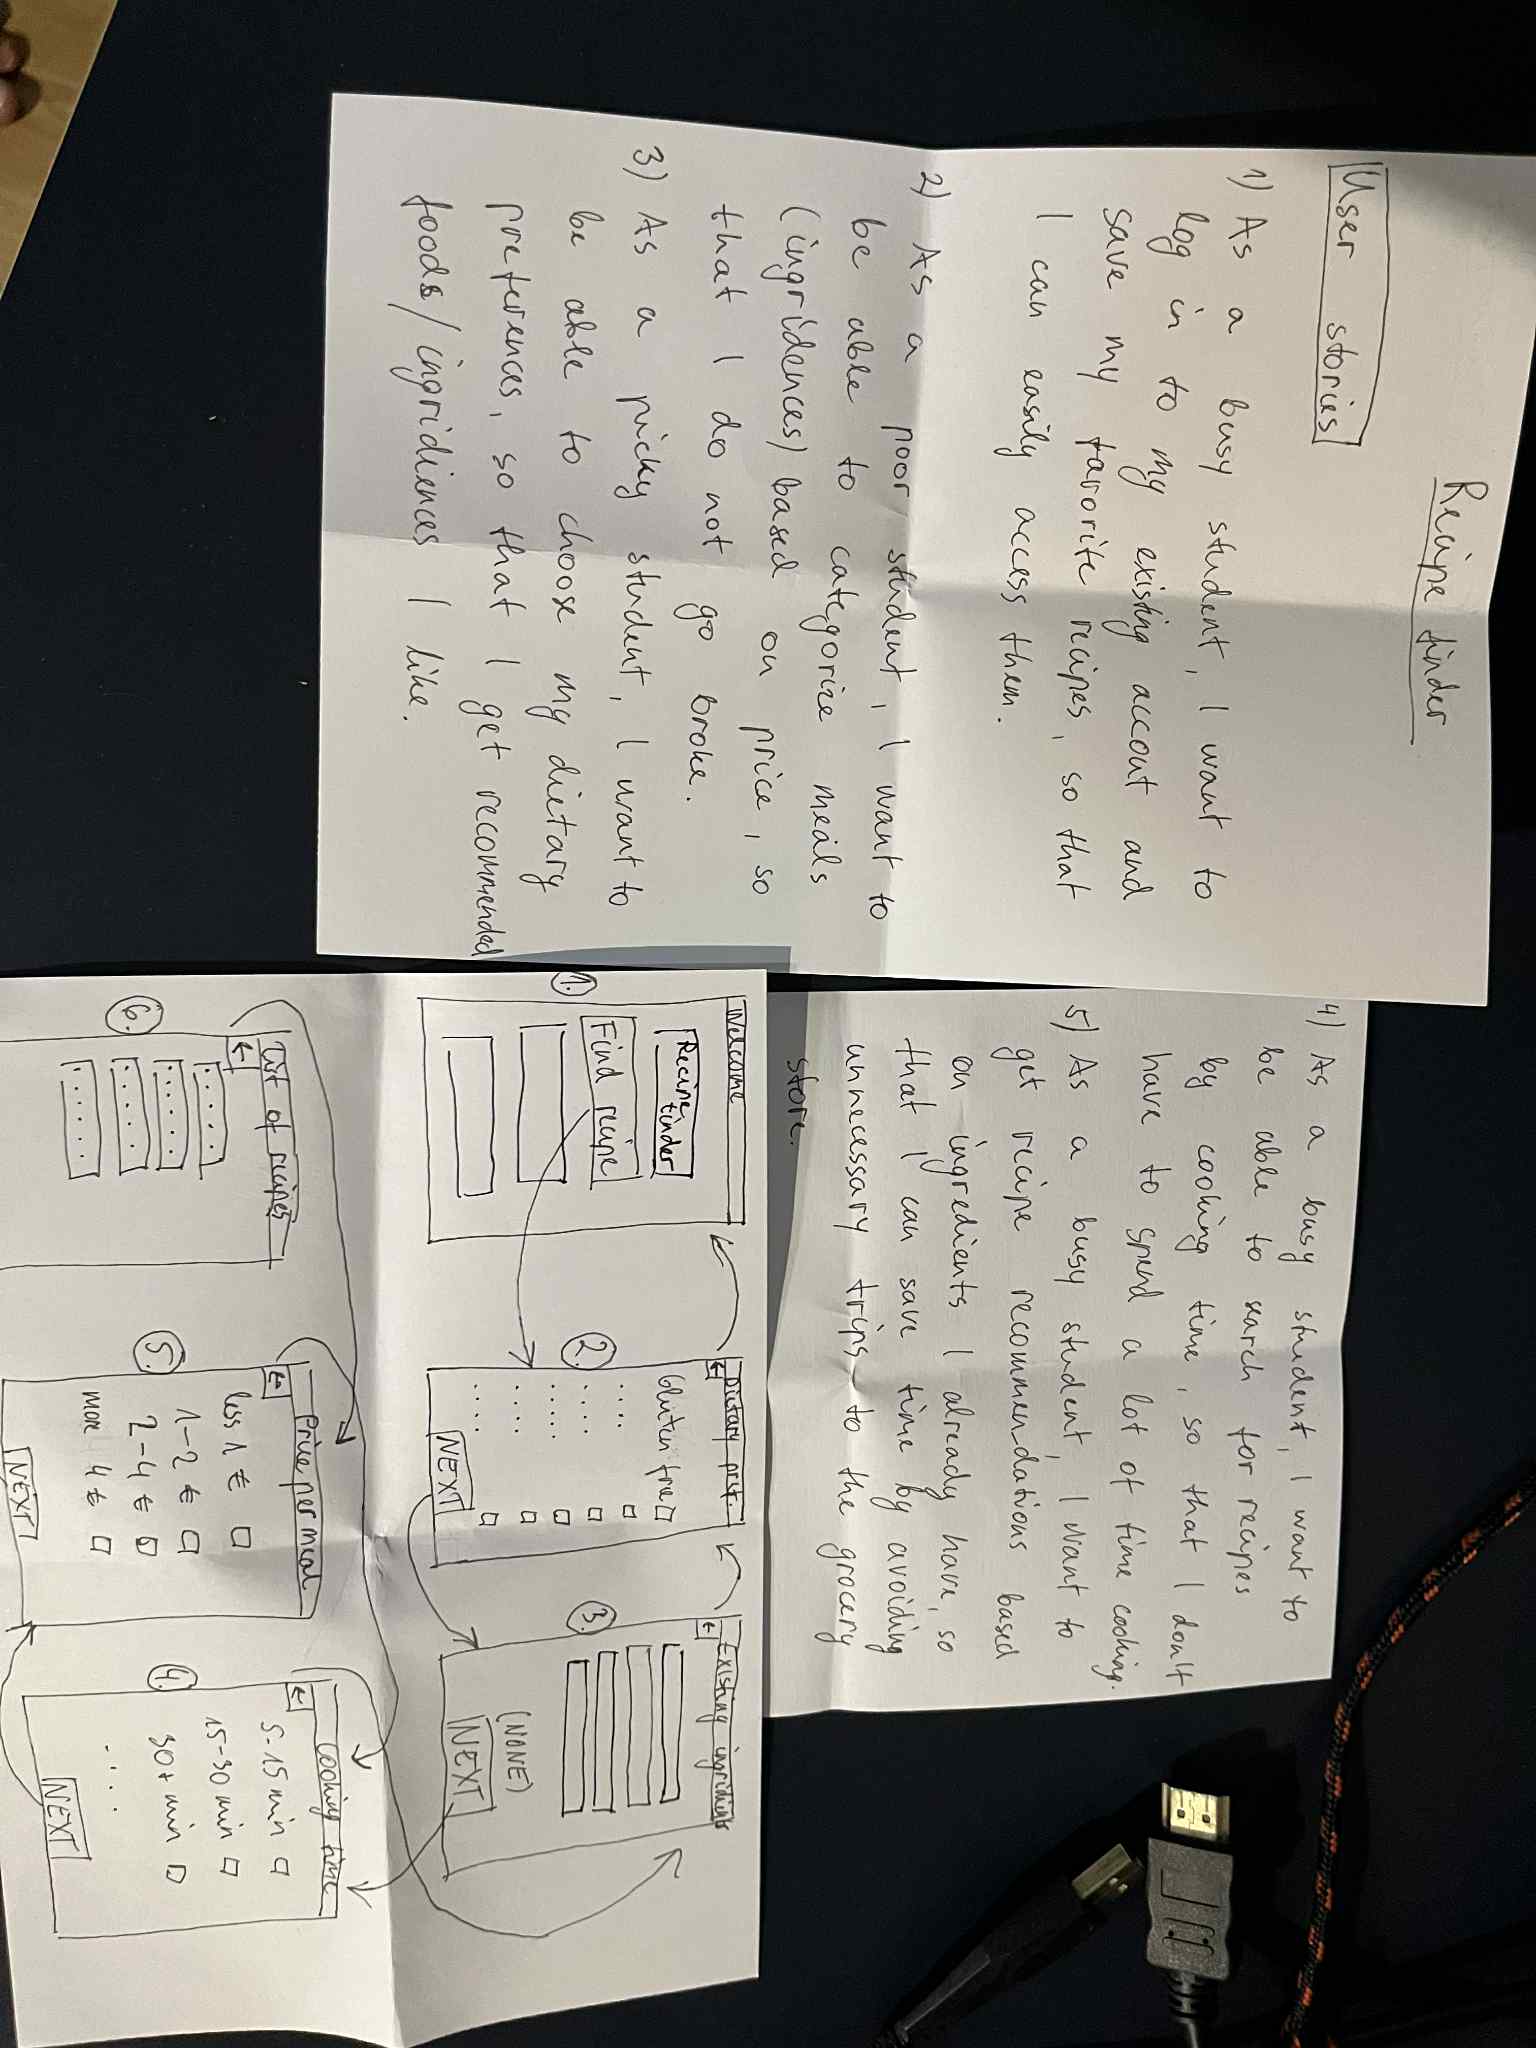 Recipe finder
User stories
1) As a busy student, I want to
log in to my existing accout and
save my favorite recipes, so that
I can easily access them.
2) As a poor student, I want to
be able to categorize meals
(ingridences) based on price, so
that I do not go broke.
3) As a picky student, I want to
be able to choose my dietary
preferences, so that I get recommended
foods/ingridiences I like.
4) As a busy student, I want to
be able to search for recipes
by cooking time, so that I don't
have to spend a lot of time cooking.
5) As a busy student, I want to
get recipe recommendations based
on ingredients I already have, so
that I can save time by avoiding
unnecessary trips to the grocery
store.
1.
Welcome
Recipe finder
Find recipe
2.
←
Dietary pref.
Gluten free
....
....
.....
....
....
NEXT
3.
←
Existing ingridients
(NONE)
NEXT
4.
←
Cooking time
5-15 min
15-30 min
30+ min
....
NEXT
5.
←
Price per meal
less 1 €
1-2 €
2-4 €
more 4 €
NEXT
6.
←
List of recipes
....
.....
.....
.....